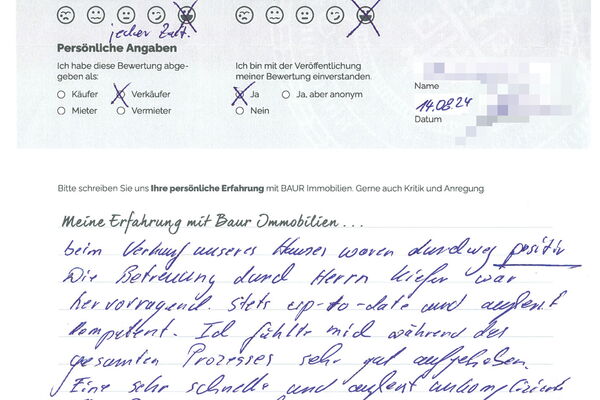 jeder Zeit.
Persönliche Angaben
Ich habe diese Bewertung abge-
geben als:
Käufer
Verkäufer
Mieter
Vermieter
Ich bin mit der Veröffentlichung
meiner Bewertung einverstanden.
Ja
Ja, aber anonym
Nein
Name
14.08.24
Datum
Bitte schreiben Sie uns Ihre persönliche Erfahrung mit BAUR Immobilien. Gerne auch Kritik und Anregung
Meine Erfahrung mit Baur Immobilien...
beim Verkauf unseres Hauses waren durchweg positiv
Die Betreuung durch Herrn Kiefer war
hervorragend. Stets up-to-date und äußerst
kompetent. Ich fühlte mich während des
gesamten Prozesses sehr gut aufgehoben.
Eine sehr schnelle und äußerst unkomplizierte